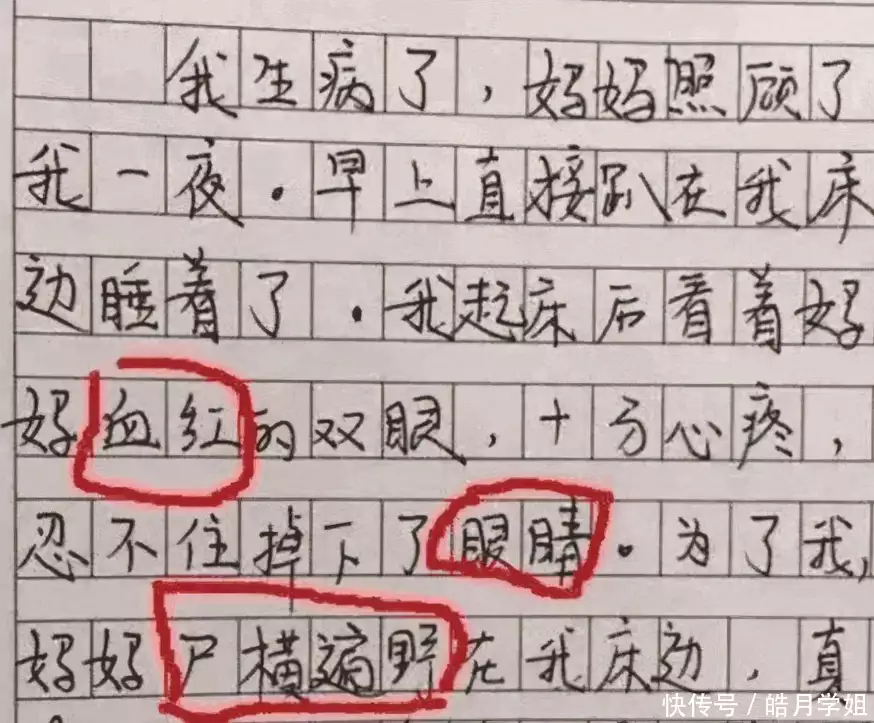 我生病了，妈妈照顾了
我一夜．早上直接趴在我床
边睡着了．我起床后看着妈
妈血红的双眼，十分心疼，
忍不住掉下了眼睛．为了我，
妈妈尸横遍野在我床边．真
快传号／皓月学姐